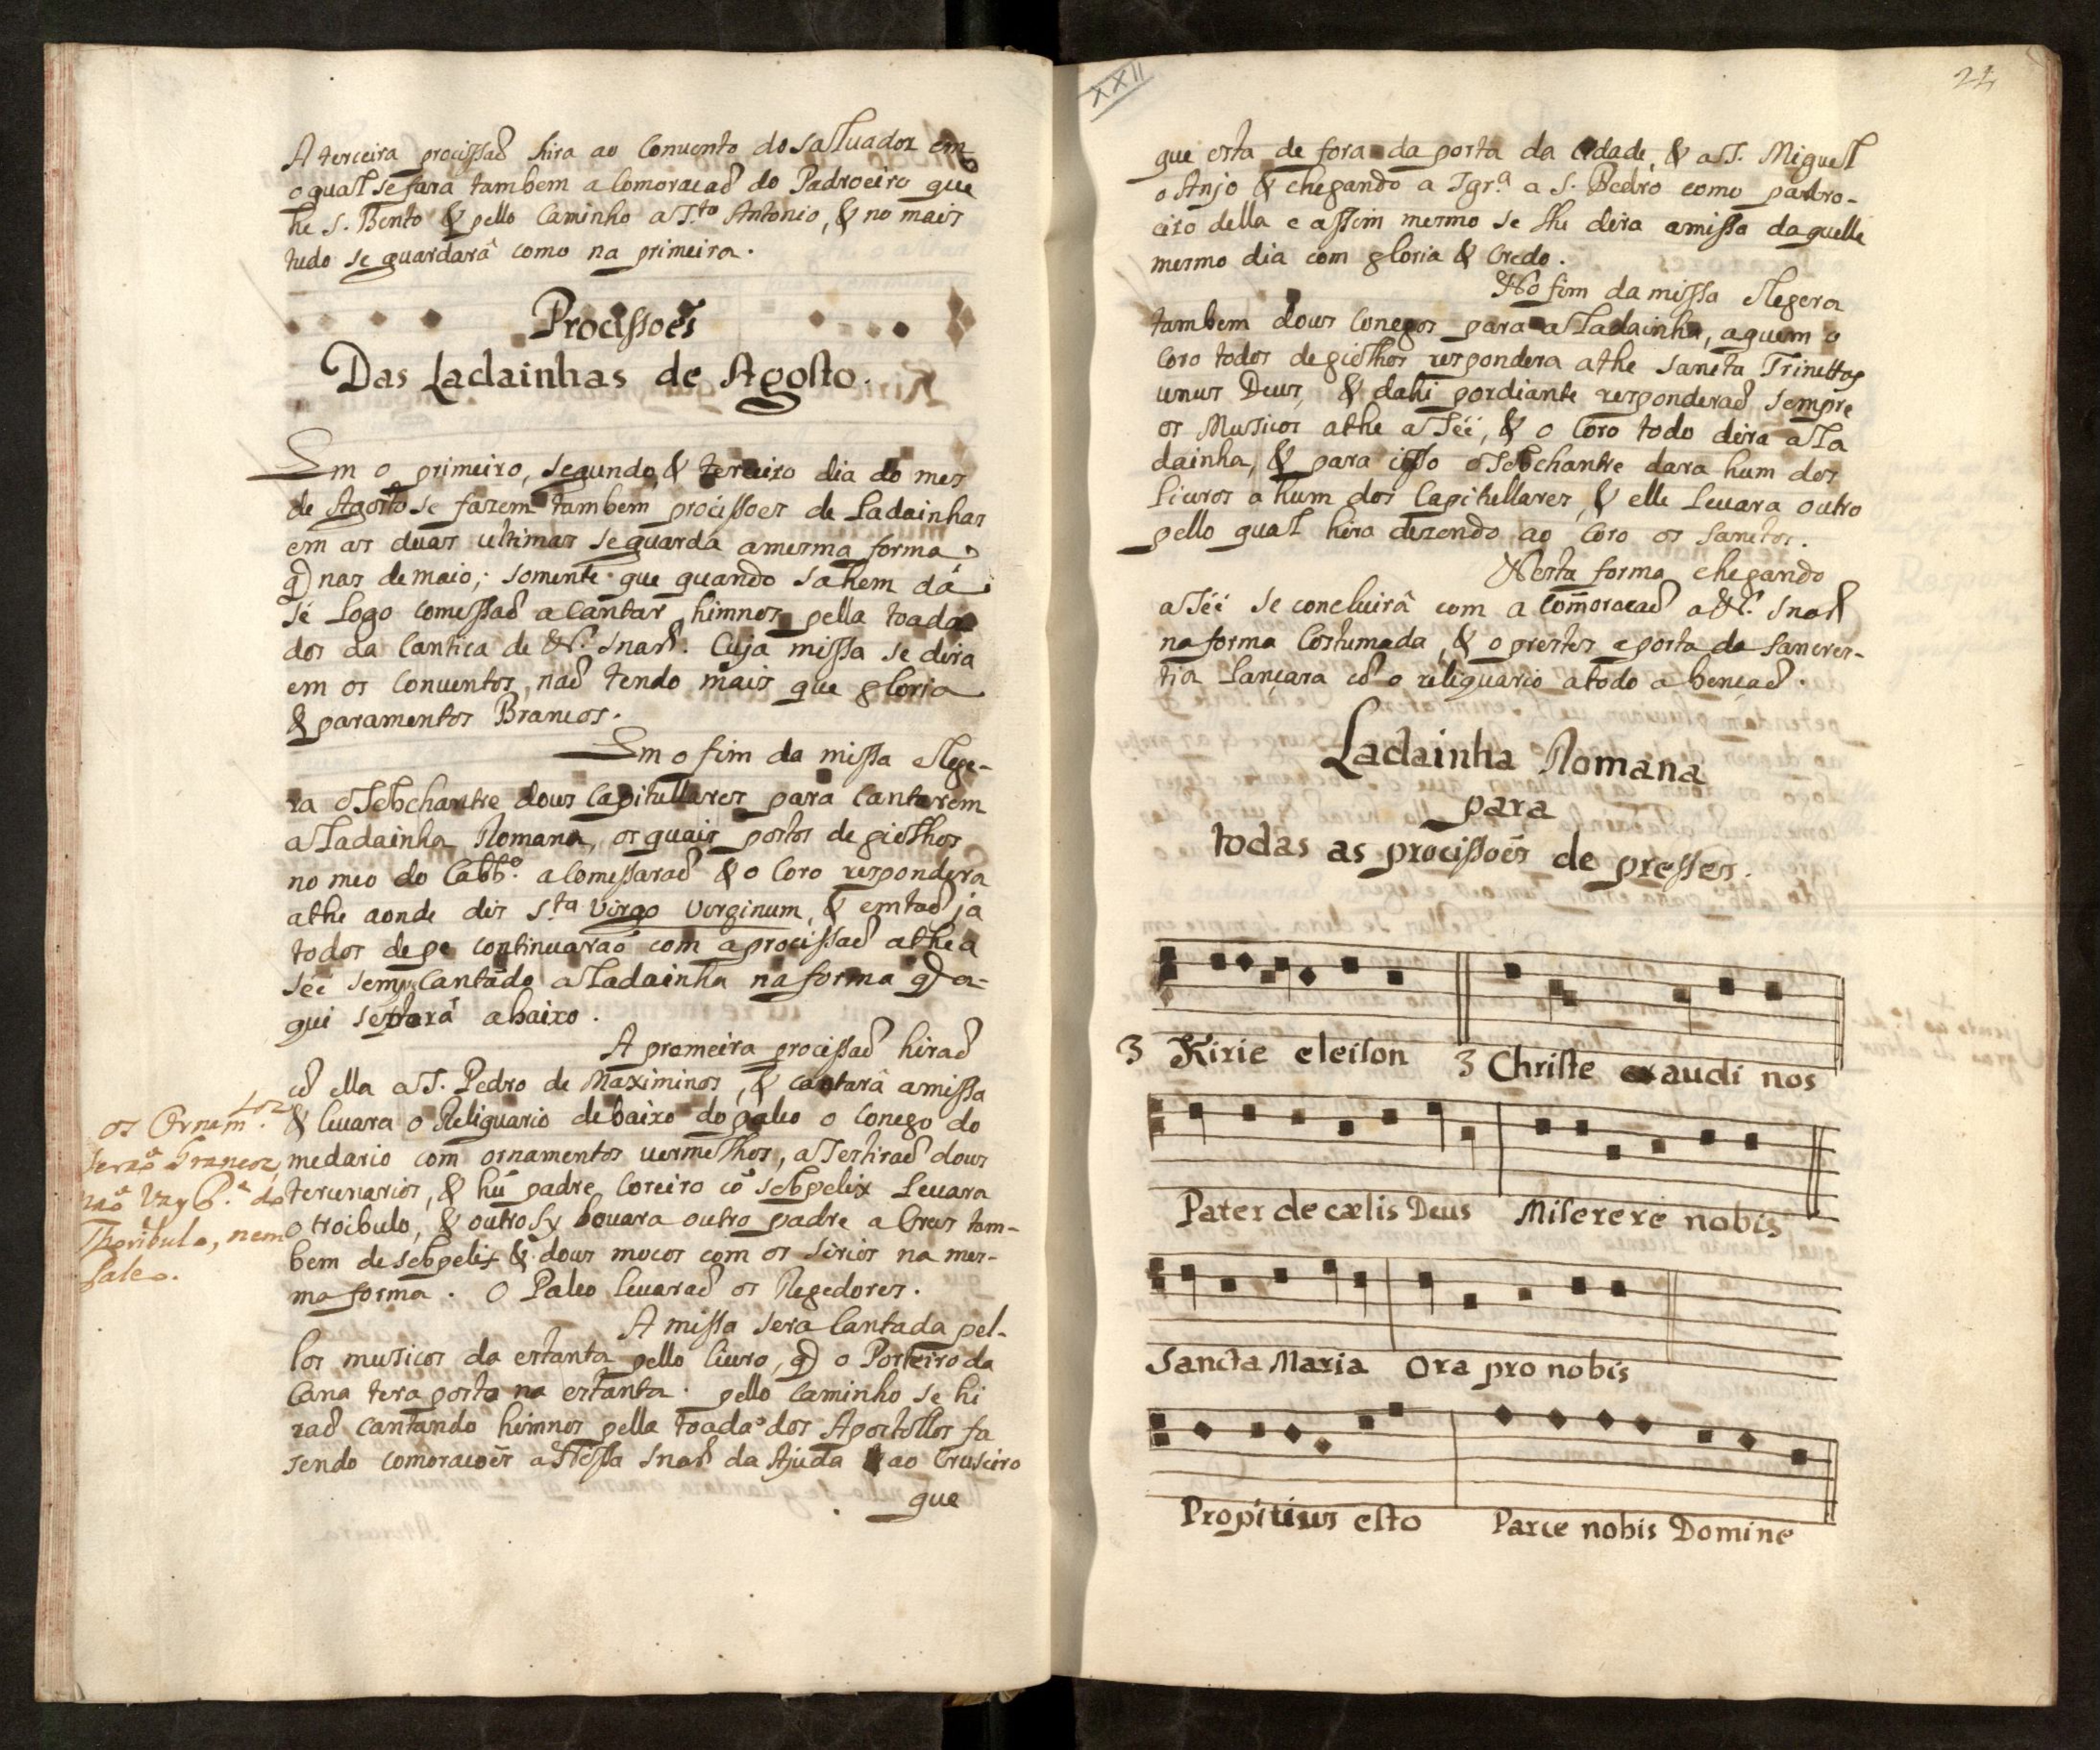 A terceira procissaõ hira ao Conuento do saluador em
o qual se fara tambem a Comoracaõ do Padroeiro que
he S. Bento & pello Caminho a S.to Antonio, & no mais
tudo se guardarâ como na primeira.
Procissoẽs
Das Ladainhas de Agosto.
Em o primeiro, segundo, & terceiro dia do mes
de Agosto se fazem tambem procissoes de Ladainhas
em as duas ultimas se guarda a mesma forma
q) nas de maio; somente que quando sahem dá
sé logo comessaõ a Cantar himnos pella toada
dos da Cantica de N. Snarã. Cuja missa se dira
em os Conuentos, naõ tendo mais que gloria
& paramentos Brancos.
Em o fim da missa elege-
ra o Sobchantre dous Capitullares para Cantarem
a Ladainha Romana, os quais postos de gielhos
no meo do Cabb.o a Comessaraõ & o Coro respondera
athe aonde dis S.ta Virgo Virginum, & emtaõ ja
todos de pe continuaraõ com a procissaõ athe a
séé semp. Cantãdo a Ladainha na forma q) a-
qui se porá abaixo.
A promeira procissaõ hiraõ
cõ ella a S. Pedro de Maximinos, & cantarâ a missa
& leuara o Religuario debaixo do paleo o Conego do
medario com ornamentos uermelhos, a Sestiraõ dous
tercenarios, & hũ padre Coreiro cõ sobpelix Leuara
o troibulo, & outro Sy leuara outro padre a Crus tam-
bem de sobpelix & dous mocos com os sirios na mes-
ma forma. O Paleo leuaraõ os Regedores.
os Ornam.tos
seraõ brancos,
naõ Vay P.e do
Thoribulo, nem
Paleo.
A missa sera Cantada pel-
los musicos da estanta pello liuro, q) o Porteiro da
Cana tera posto na estanta. pello Caminho se hi
raõ cantando himnos pella toada dos Apostollos fa
sendo comoracoẽs a Nossa Snarã da Ajuda & ao Cruseiro
que
XXII
24
que esta de fora da porta da Cidade, & a S. Miguel
o Anjo & chegando a Igr.a a S. Pedro como padro-
eiro della e assim mesmo se lhe dira a missa daquelle
mesmo dia com gloria & Credo.
No fim da missa elegera
tambem dous Conegos para a Ladainha, a quem o
Coro todos de gielhos respondera athe Sancta Trinittas
unus Deus, & dahi pordiante responderaõ sempre
os Musicos athe a Séé, & o Coro todo dira a La
dainha, & para isso o Sobchantre dara hum dos
liuros a hum dos Capitullares, & elle leuara outro
pello qual hira dezendo ao Coro os Sanctos.
Nesta forma chegando
a Séé se concluirâ com a Comoracaõ a N. Snarã
na forma Costumada, & o prestes a porta da Sancres-
tia Lançara cõ o religuario a todo a bencaõ.
Ladainha Romana
para
todas as procissoẽs de presses.
3 Kirie eleison 3 Christe exaudi nos
Pater de cælis Deus Miserere nobis
Sancta Maria Ora pro nobis
Propitius esto Parce nobis Domine